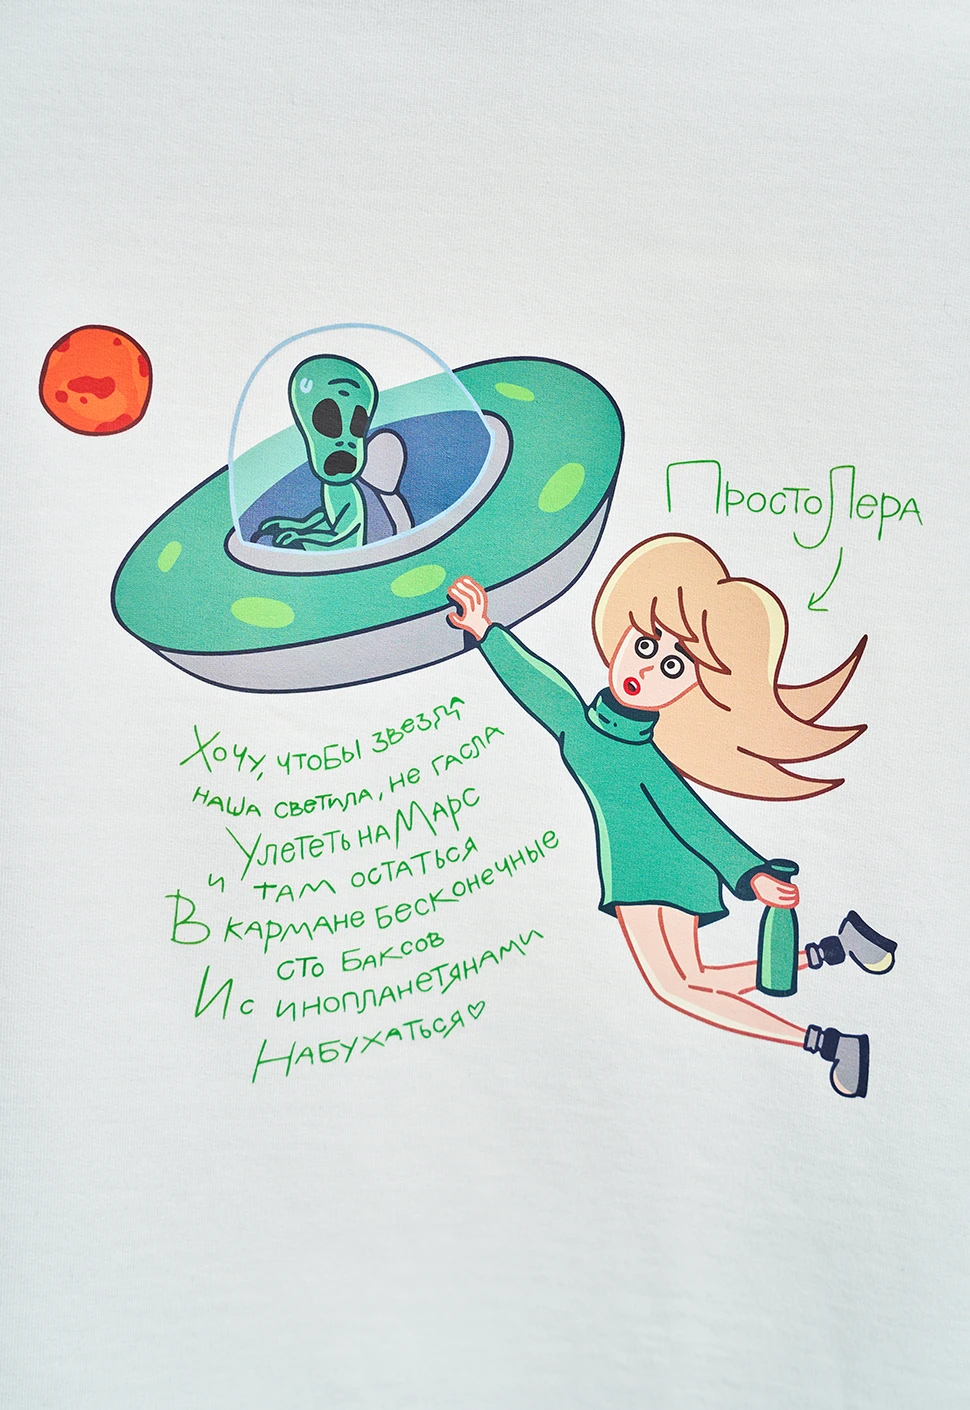 ПростоЛера
Хочу, чтобы звезда
наша светила, не гасла
Улететь на Марс
и там остаться
В кармане бесконечные
сто баксов
И с инопланетянами
Набухаться♡